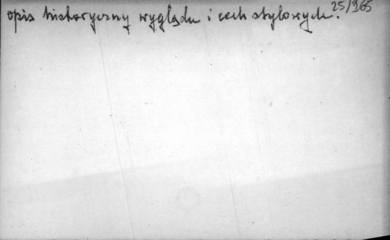 25/965
opis historyczny wyglądu i cech stylowych.